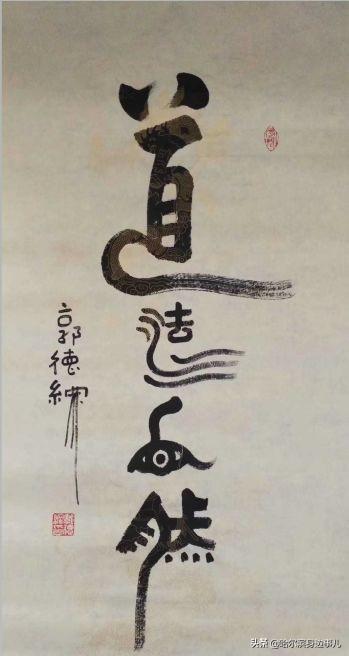 道法自然
郭德綱
头条 @哈尔滨身边事儿